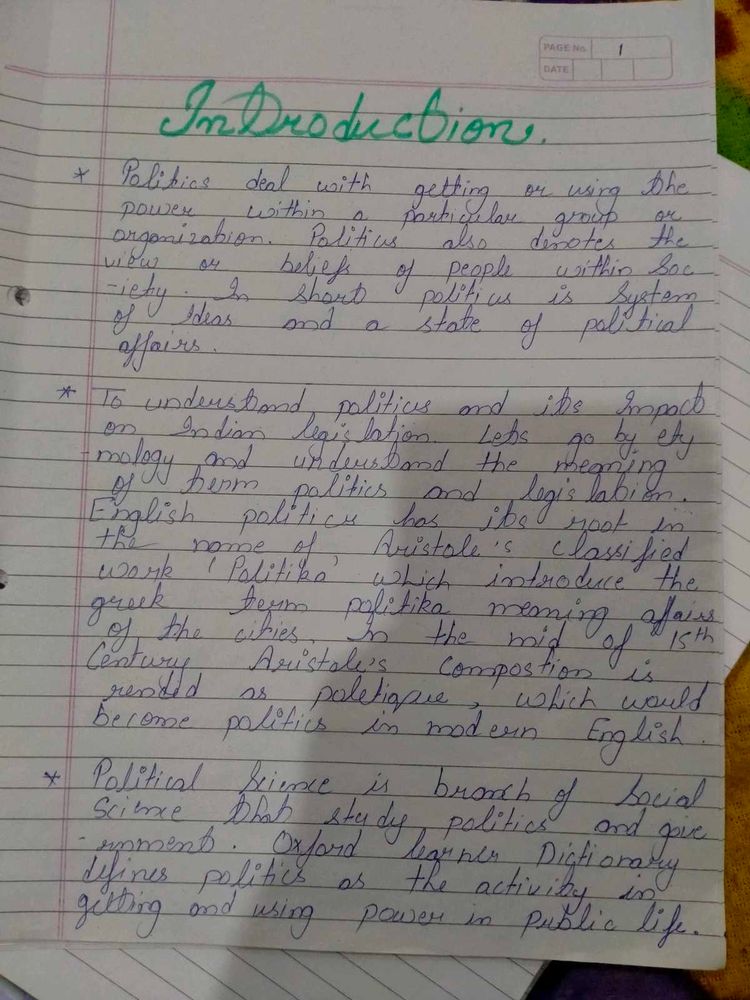 PAGE No. 1
DATE
Introduction.
* Politics deal with getting or using the
power within a particular group or
organization. Politics also denotes the
view or beliefs of people within Soc
-iety. In short politics is System
of Ideas and a state of political
affairs.
* To understand politics and its Impact
on Indian legislation. Lets go by ety
-mology and understand the meaning
of term politics and legislation.
English politics has its root in
the name of, Aristole's classified
work 'Politika' which introduce the
greek term politika meaning affairs
of the cities. In the mid of 15th
Century Aristole's Compostion is
rended as poletique, which would
become politics in modern English.
* Political Science is branch of Social
Science that study politics and gove
-rnment. Oxford learner Dictionary
defines politics as the activity in
getting and using power in public life.